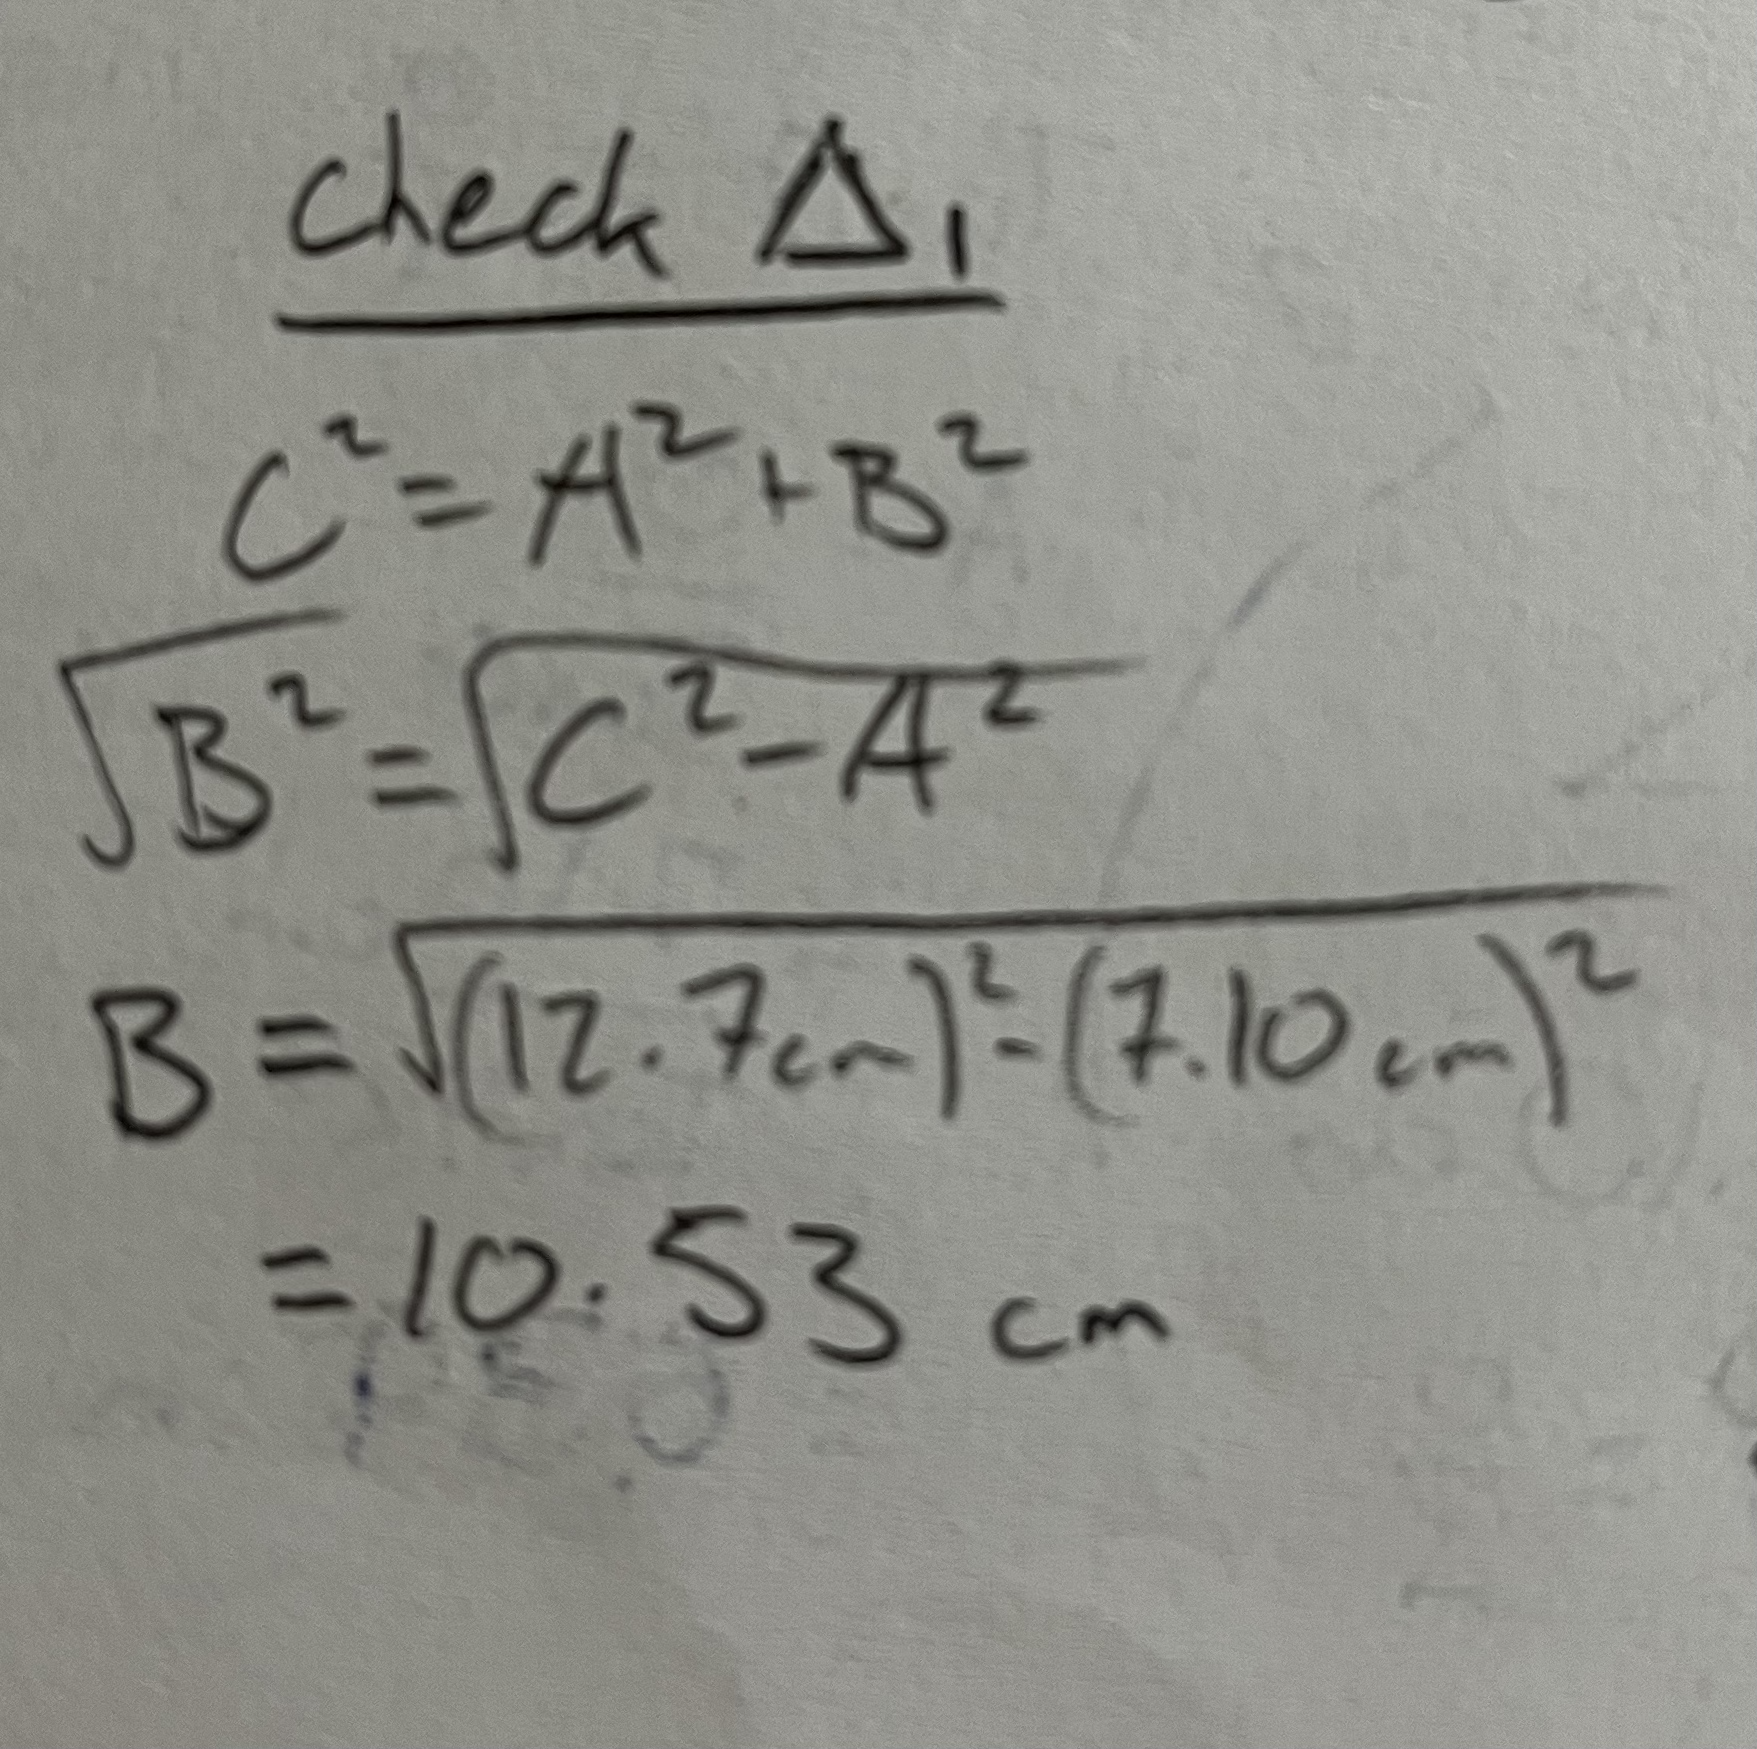 check Δ₁
C² = A² + B²
√B² = √C² - A²
B = √(12.7cm)² - (7.10cm)²
= 10.53 cm